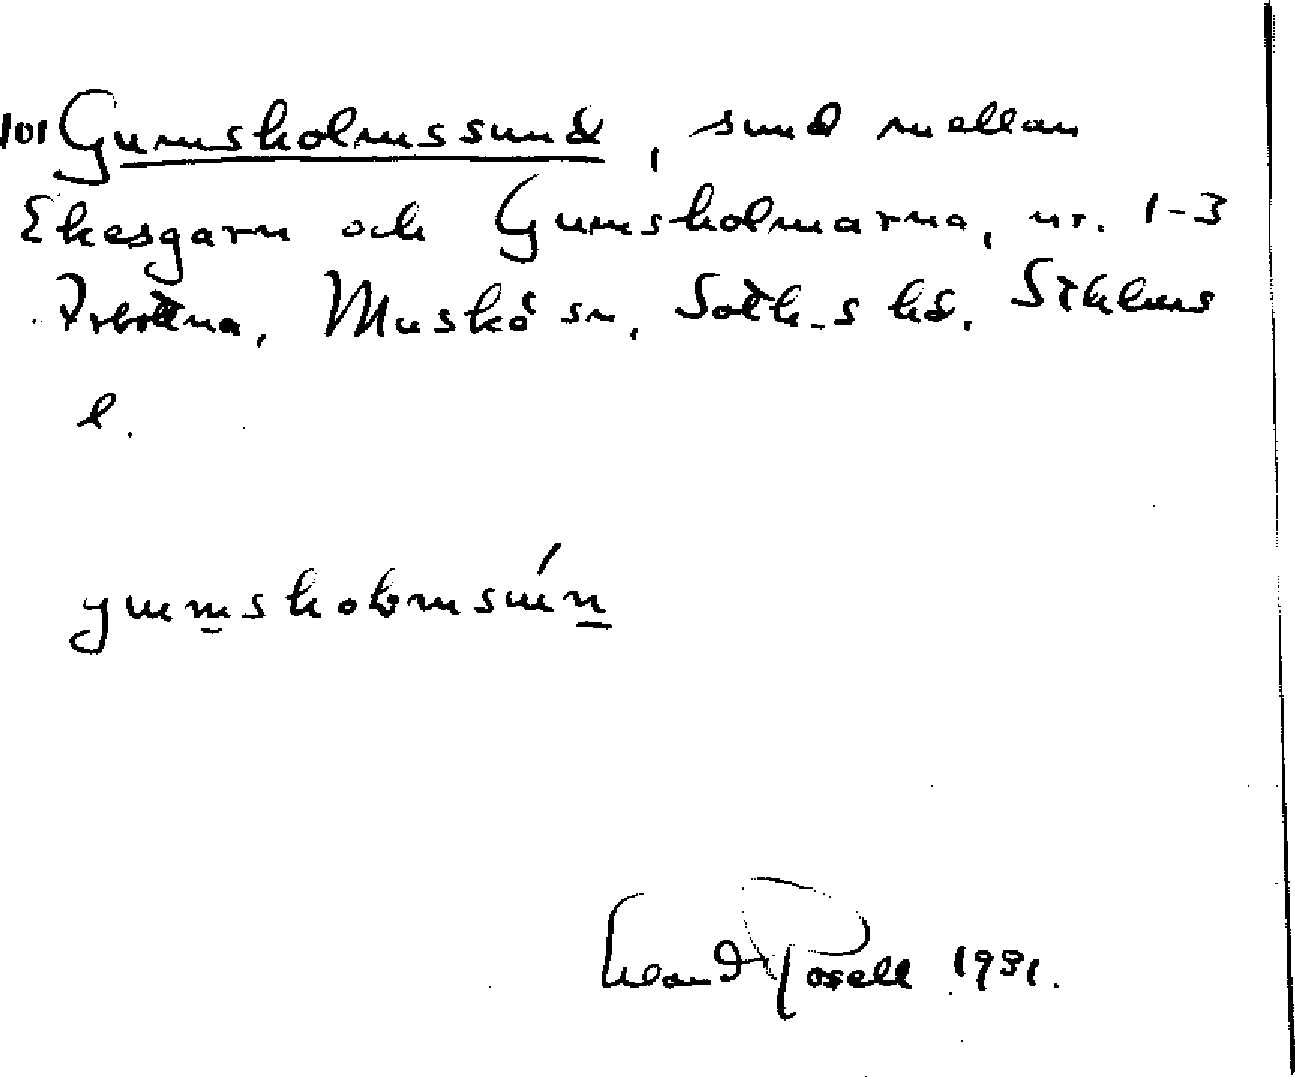 101 Gumsholmssund, sund mellan
Ekesgarn och Gumsholmarna, nr. 1-3
Arbottna, Muskö sn, Soth-s hd. Sthlms
l.
gummsholmsún
Erland Rosell 1931.